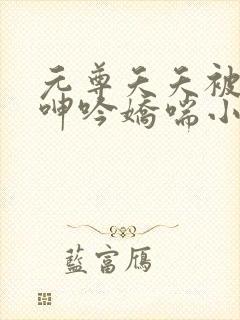 元尊天天被
呻吟嬌喘小
藍富鴈